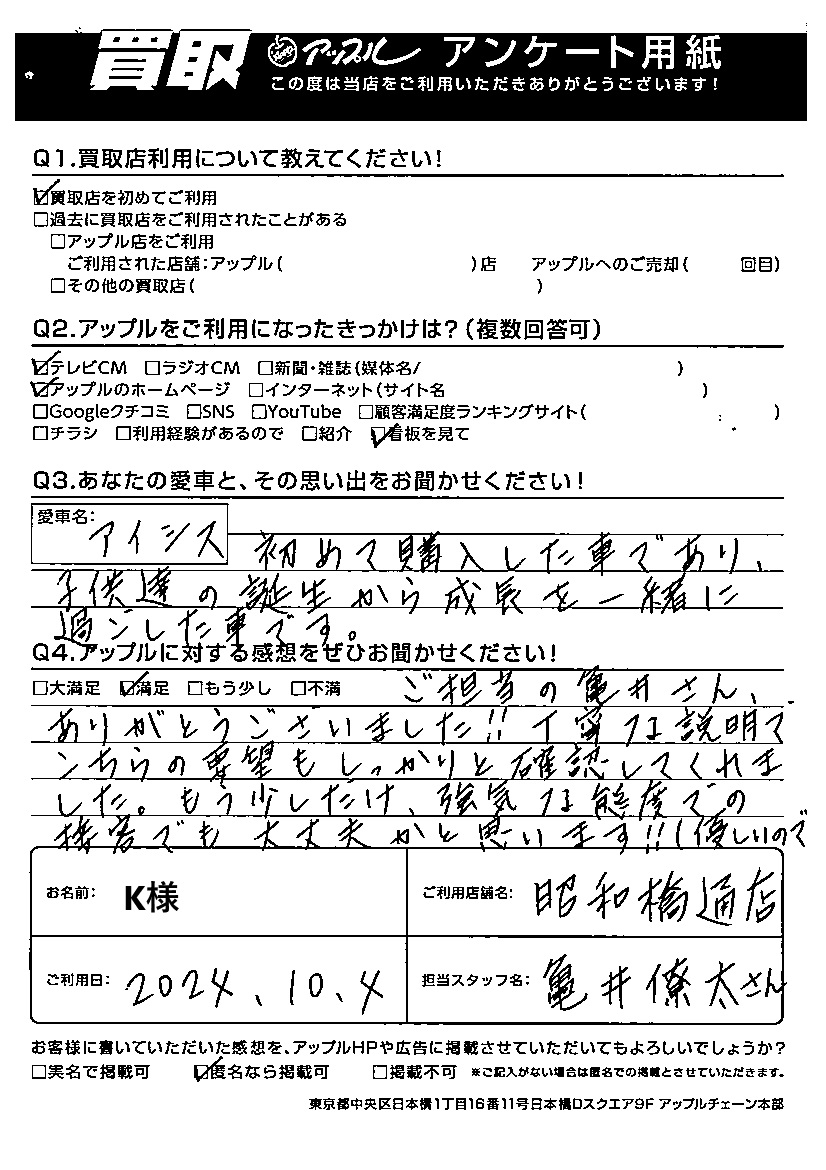 買取 アップル アンケート用紙
この度は当店をご利用いただきありがとうございます！
Q1.買取店利用について教えてください！
☑買取店を初めてご利用
□過去に買取店をご利用されたことがある
□アップル店をご利用
ご利用された店舗：アップル（　）店　アップルへのご売却（　回目）
□その他の買取店（　）
Q2.アップルをご利用になったきっかけは？（複数回答可）
☑テレビCM　□ラジオCM　□新聞・雑誌（媒体名/　）
☑アップルのホームページ　□インターネット（サイト名　）
□Googleクチコミ　□SNS　□YouTube　□顧客満足度ランキングサイト（　）
□チラシ　□利用経験があるので　□紹介　☑看板を見て
Q3.あなたの愛車と、その思い出をお聞かせください！
愛車名：アイシス
初めて購入した車であり、
子供達の誕生から成長を一緒に
過ごした車です。
Q4.アップルに対する感想をぜひお聞かせください！
□大満足　☑満足　□もう少し　□不満　ご担当の亀井さん、
ありがとうございました!!丁寧な説明で
こちらの要望もしっかりと確認してくれま
した。もう少しだけ、強気な態度での
接客でも大丈夫かと思います!!（優しいので
お名前：K様
ご利用店舗名：昭和橋通店
ご利用日：2024.10.4
担当スタッフ名：亀井僚太さん
お客様に書いていただいた感想を、アップルHPや広告に掲載させていただいてもよろしいでしょうか？
□実名で掲載可　☑匿名なら掲載可　□掲載不可　※ご記入がない場合は匿名での掲載とさせていただきます。
東京都中央区日本橋1丁目16番11号日本橋Dスクエア9F アップルチェーン本部